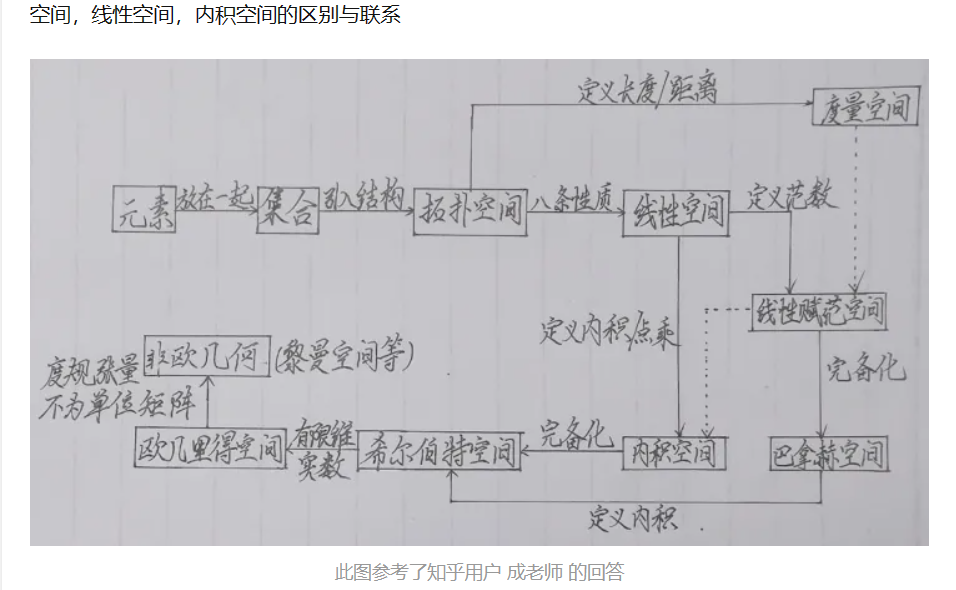 空间，线性空间，内积空间的区别与联系
定义长度/距离
度量空间
元素
放在一起
集合
引入结构
拓扑空间
八条性质
线性空间
定义范数
线性赋范空间
定义内积/点乘
完备化
度规张量
不为单位矩阵
非欧几何
(黎曼空间等)
欧几里得空间
有限维
实数
希尔伯特空间
完备化
内积空间
巴拿赫空间
定义内积
此图参考了知乎用户 成老师 的回答